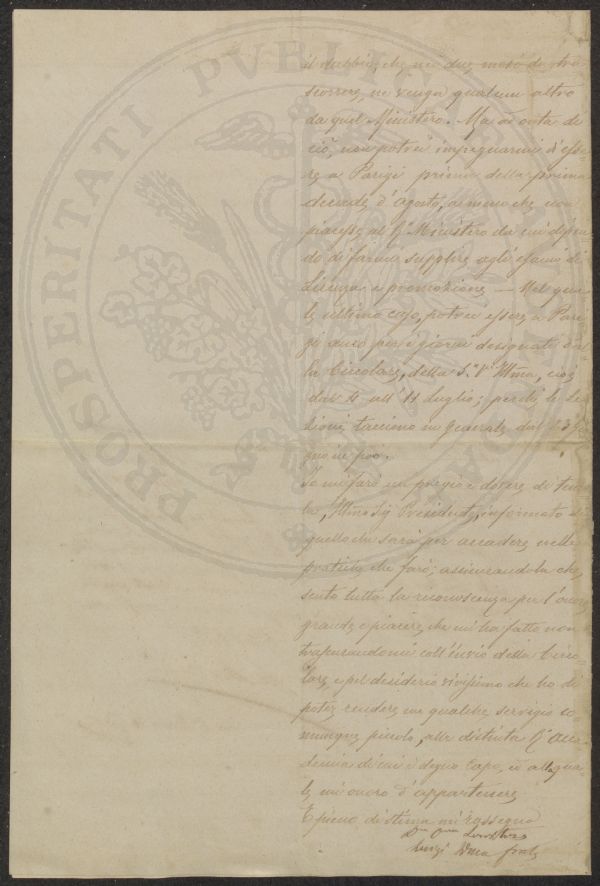 il dubbio, che nei due mesi da tra
scorrere, ne venga qualcun altro
da quel Ministero. Ma ad onta di
ciò, non potrei impegnarmi d'esse
re a Parigi prima della prima
decade d'Agosto, a meno che non
piacesse al R.º Ministero da cui dipen
do di farmi supplire agli esami di
Licenza e promozione — Nel qua
le ultimo caso, potrei essere a Pari
gi anco per i giorni designati dal
la Circolare, della S.ª V.ª Illma, cioè
dal 4 all' 11 Luglio; perchè le Le
zioni, tacciono in generale dal 13 Giu
gno in poi.
Io mi farò un pregio e dovere di tener
la, Illmo Sig Presidente, informato di
quello che sarà per accadere nelle
pratiche che farò; assicurandola che,
sento tutta la riconoscenza per l'onore
grande e piacere, che mi ha fatto non
trascurandomi coll'invio della Circo
lare, e pel desiderio vivissimo che ho di
poter rendere un qualche servigio co
munque piccolo, alla distinta R.ª Acca
demia di cui è degno Capo, ed alla qua
le mi onoro d'appartenere,
E pieno di stima mi rassegno
Luigi
PROSPERITATI PVBLICAE